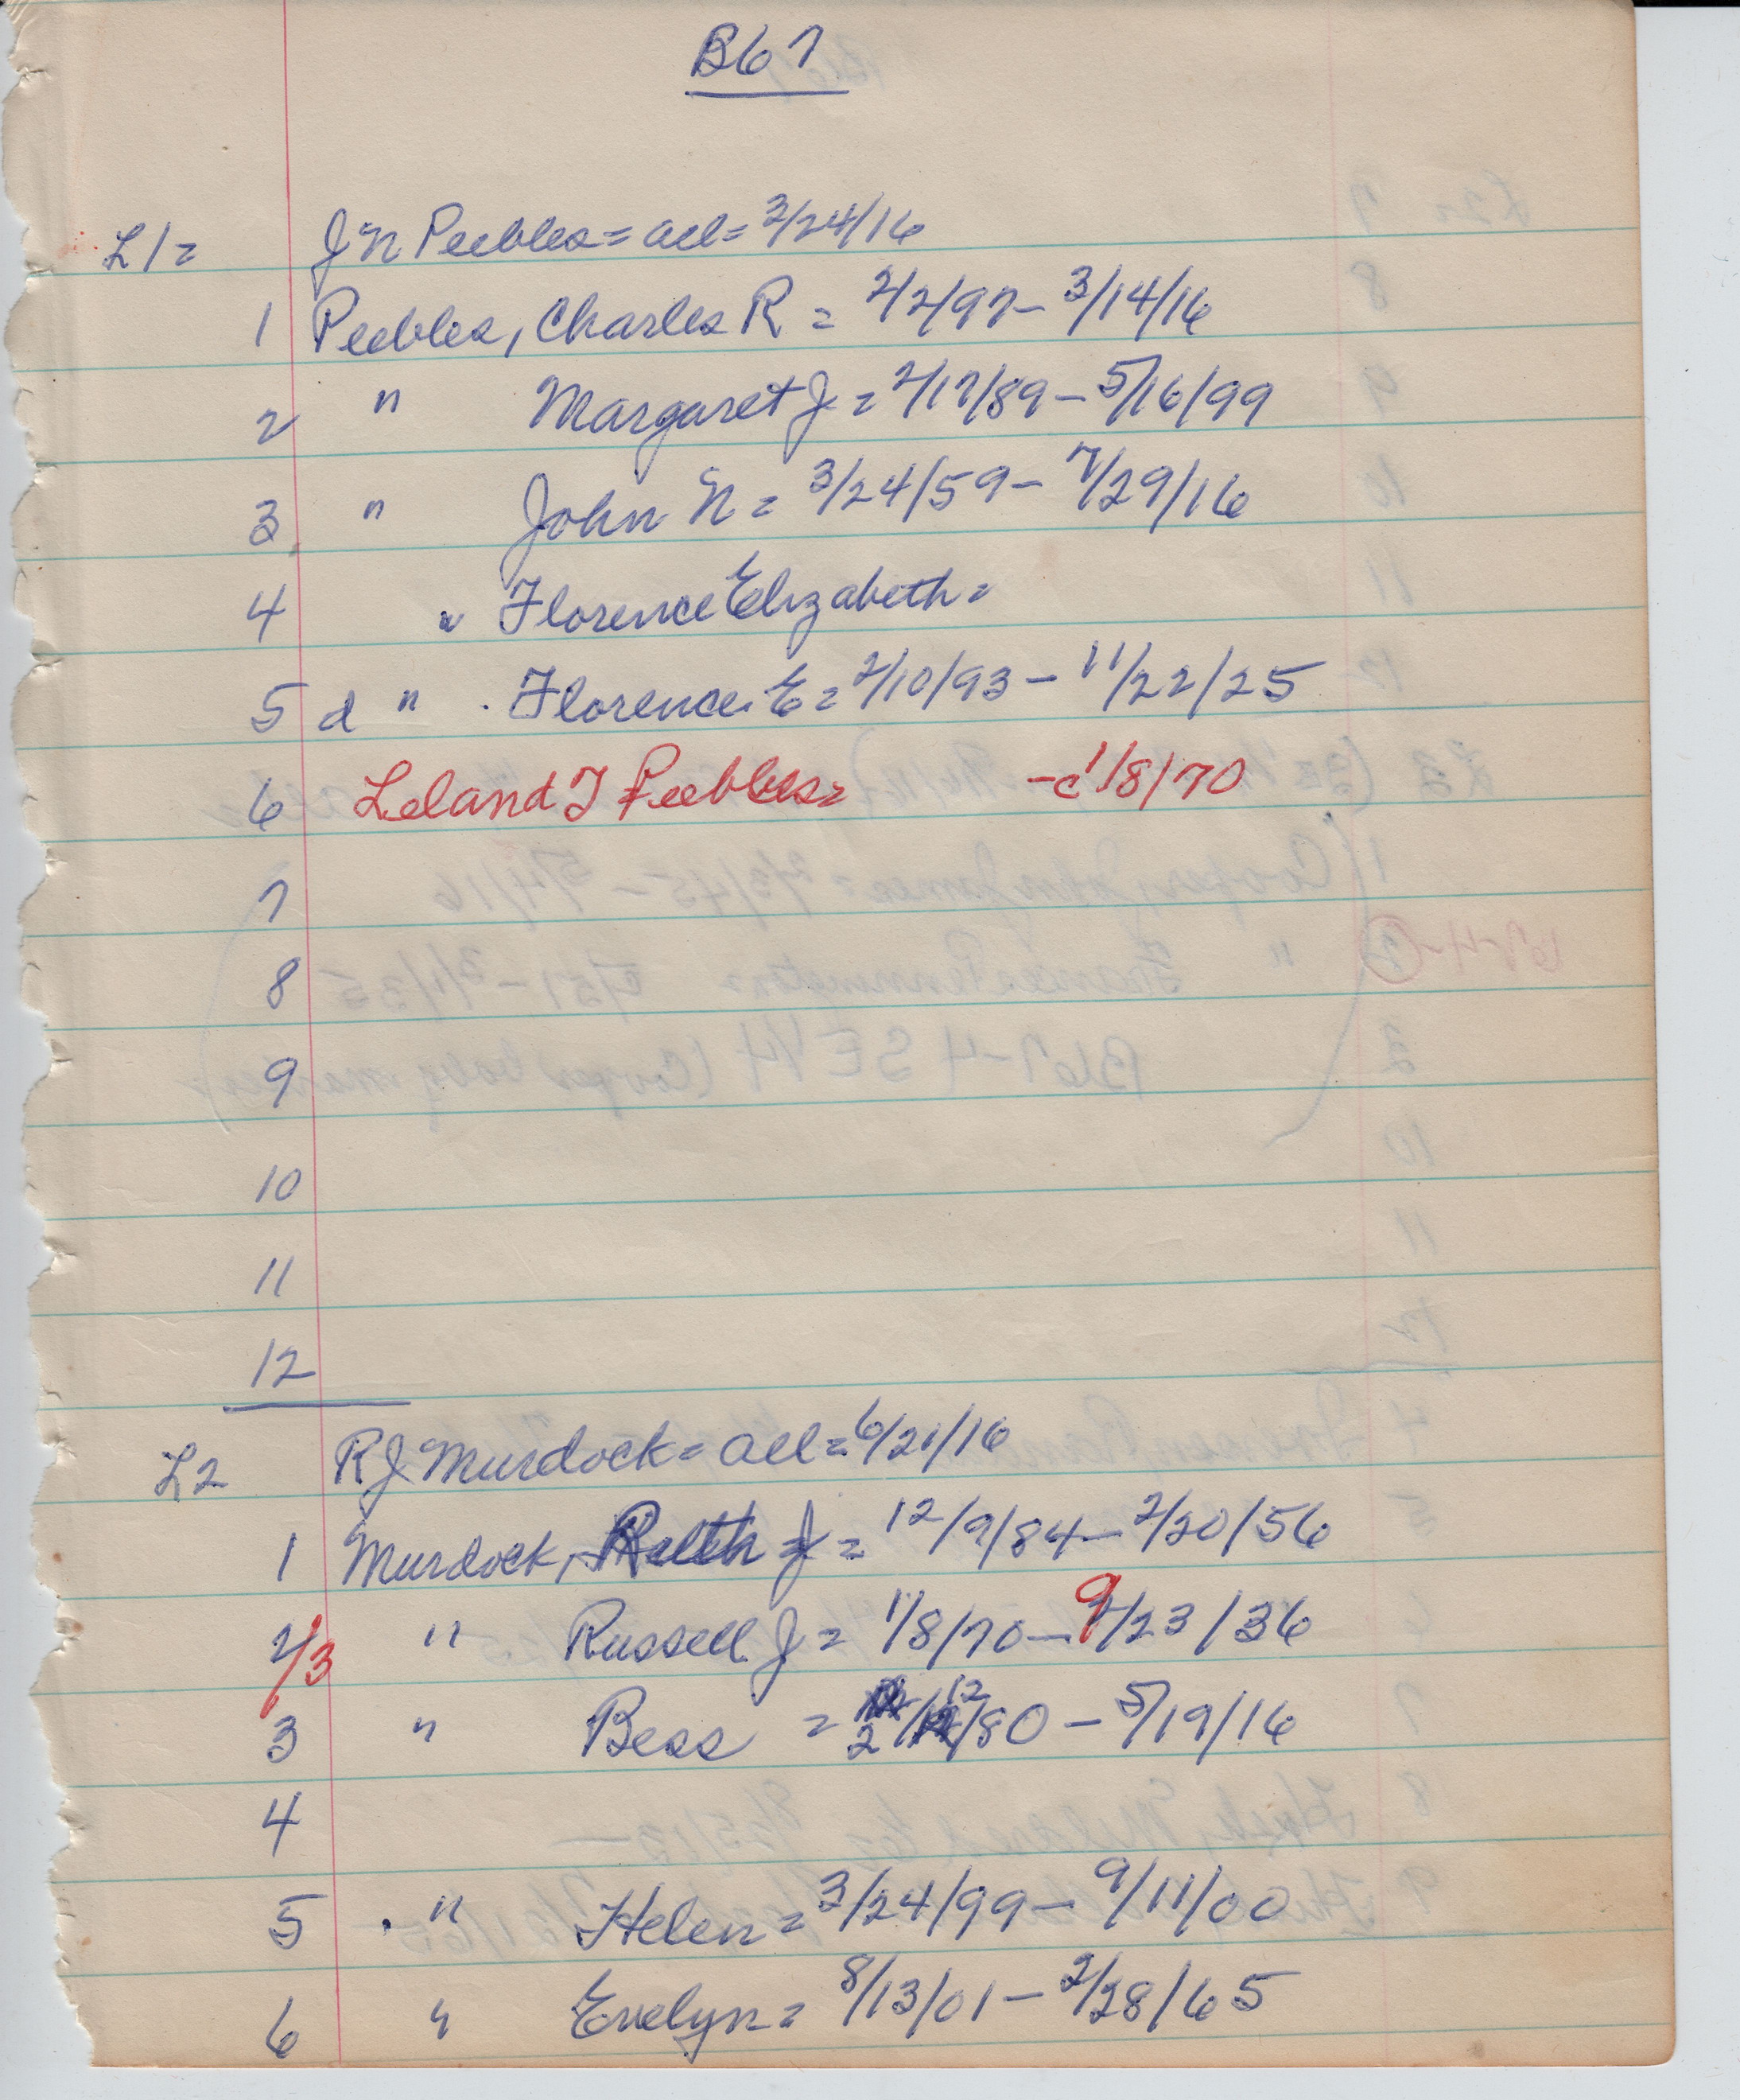 B67
L1 = J N Peebles = all = 3/24/16
1 Peebles, Charles R = 2/2/97 - 3/14/16
2 " Margaret J = 2/17/89 - 5/16/99
3 " John N = 3/24/59 - 7/29/16
4 " Florence Elizabeth =
5 d " . Florence. E = 2/10/93 - 11/22/25
6 Leland T Peebles = - c 1/8/70
7
8
9
10
11
12
L2 R J Murdock = all = 6/21/16
1 Murdock, J = 12/9/84 - 2/20/56
2/3 " Russell J = 1/8/70 - 9/23/36
3 " Bess = 2/12/80 - 5/19/16
4
5 . " Helen = 3/24/99 - 9/11/00
6 " Evelyn = 8/13/01 - 2/28/65